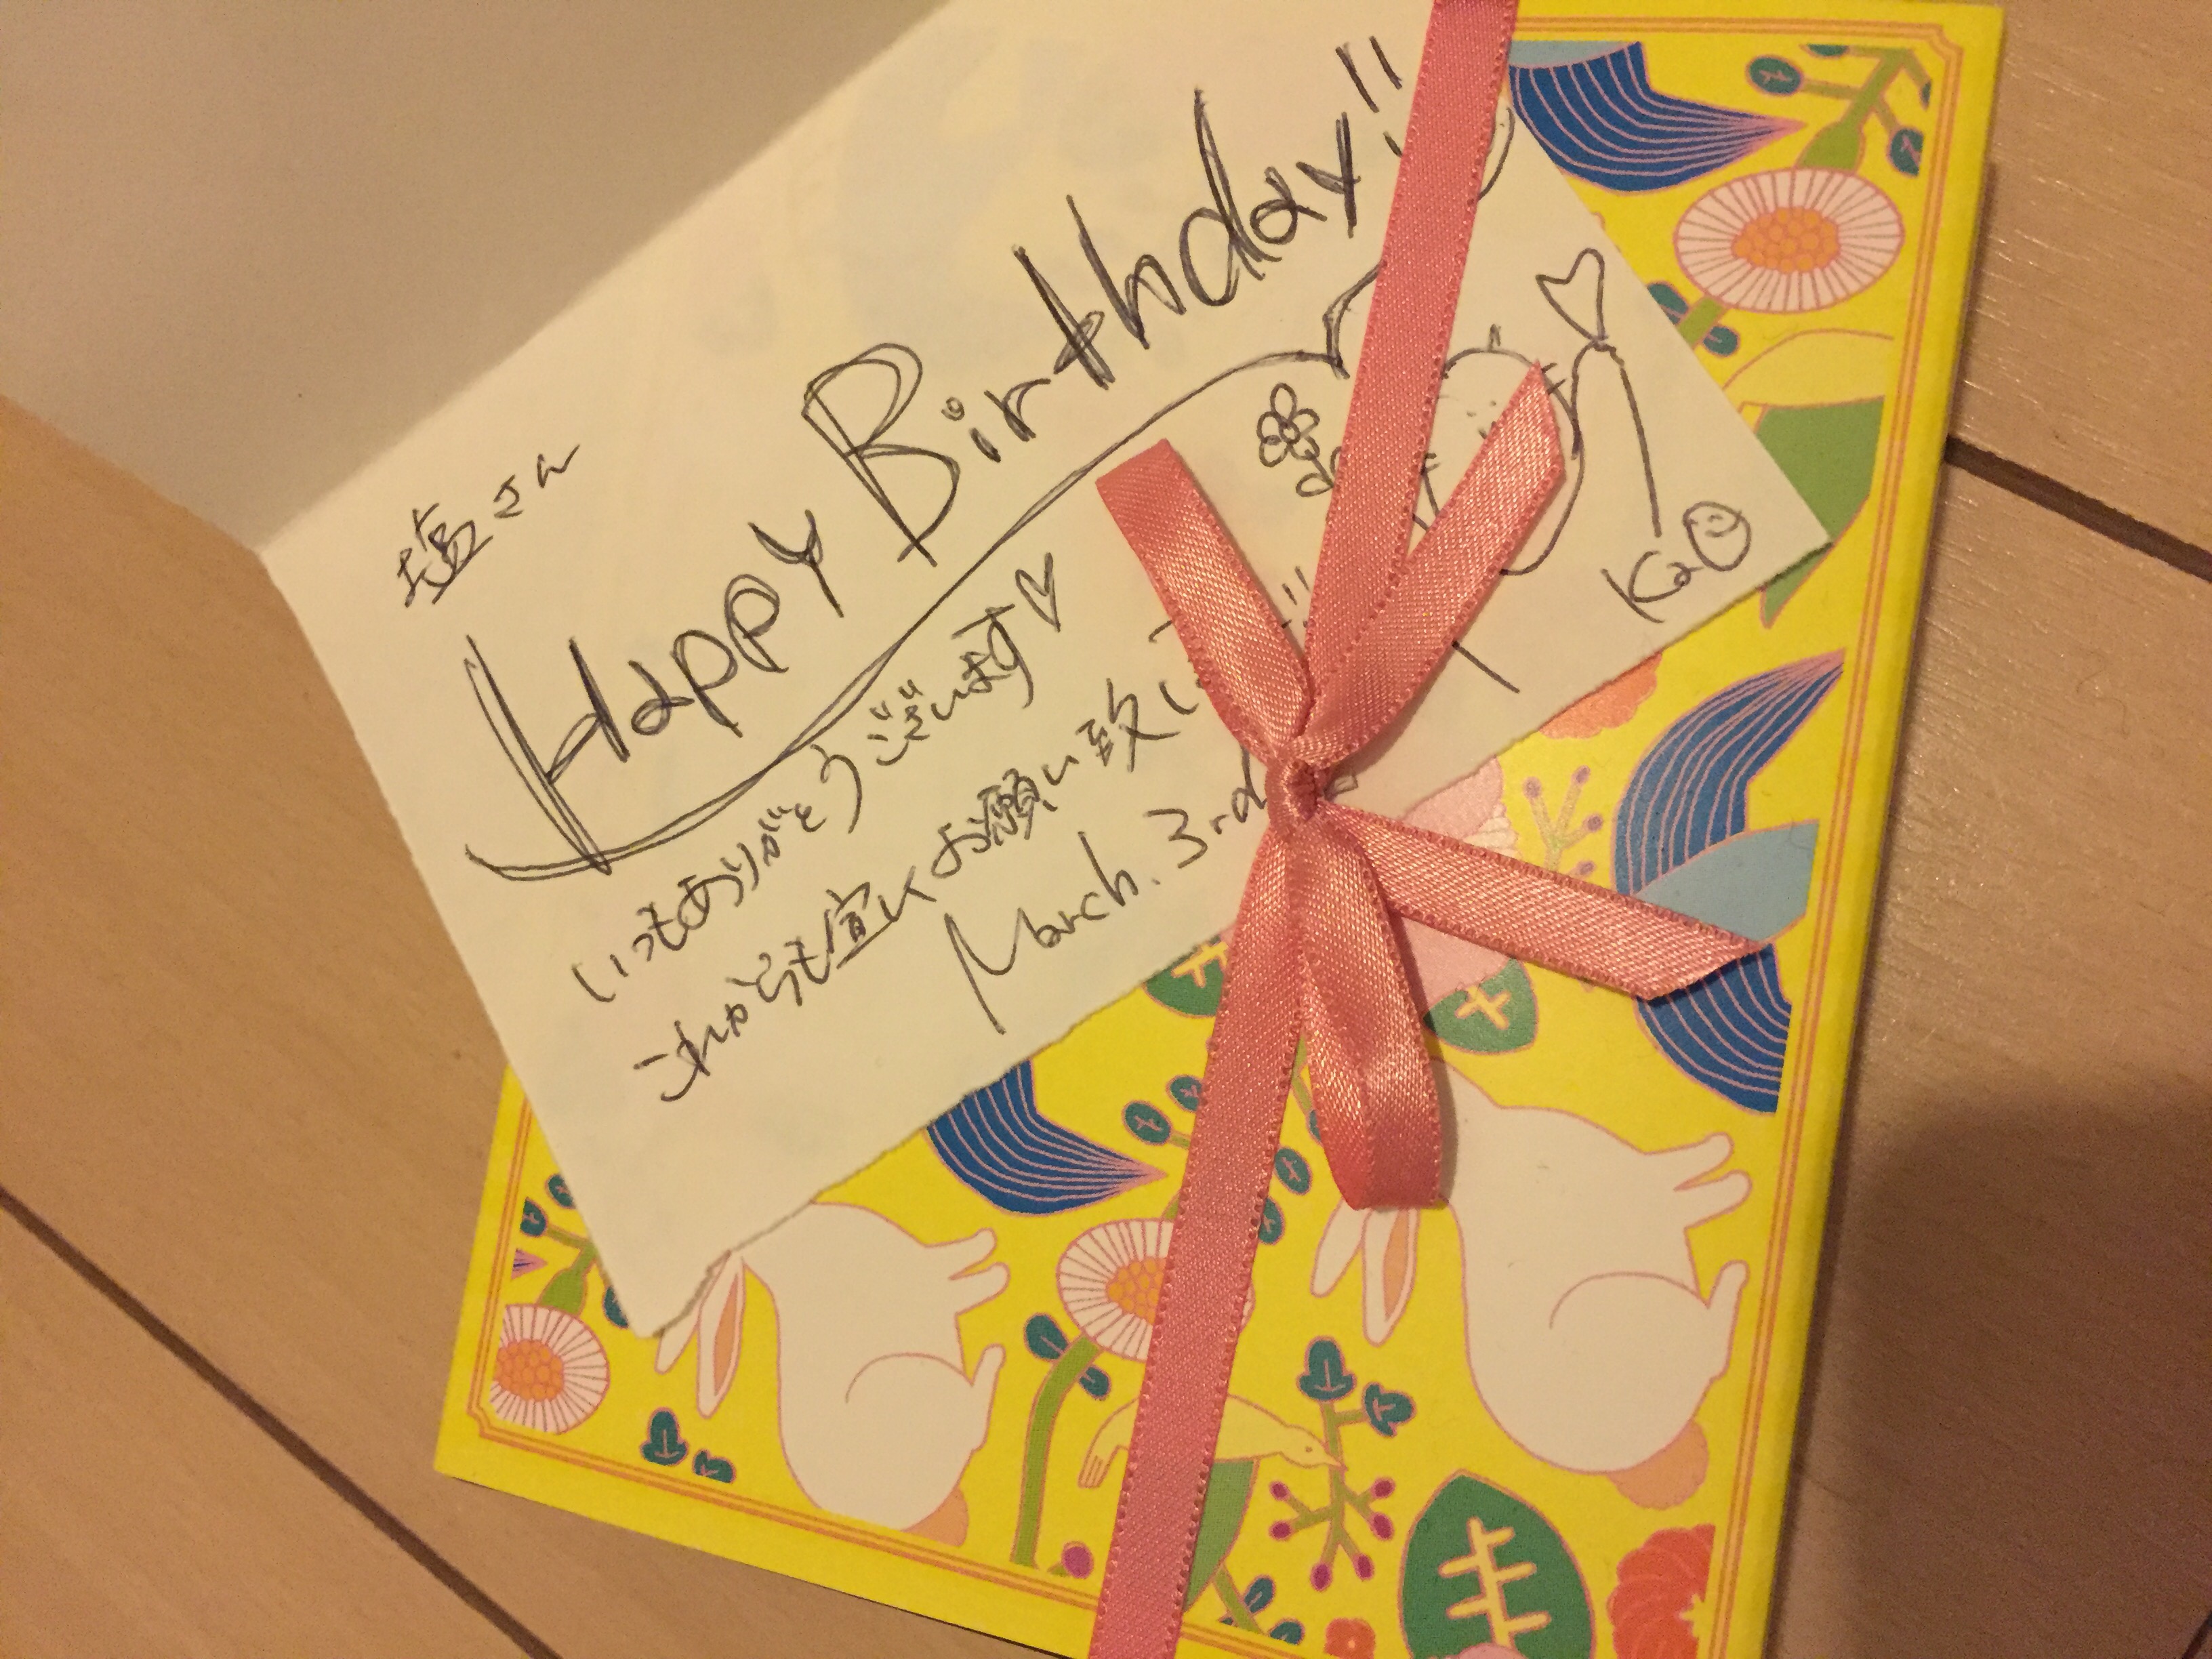 塩さん
Happy Birthday!!
いつもありがとうございます♡
これからも宜しくお願い致し
March. 3rd
Kao